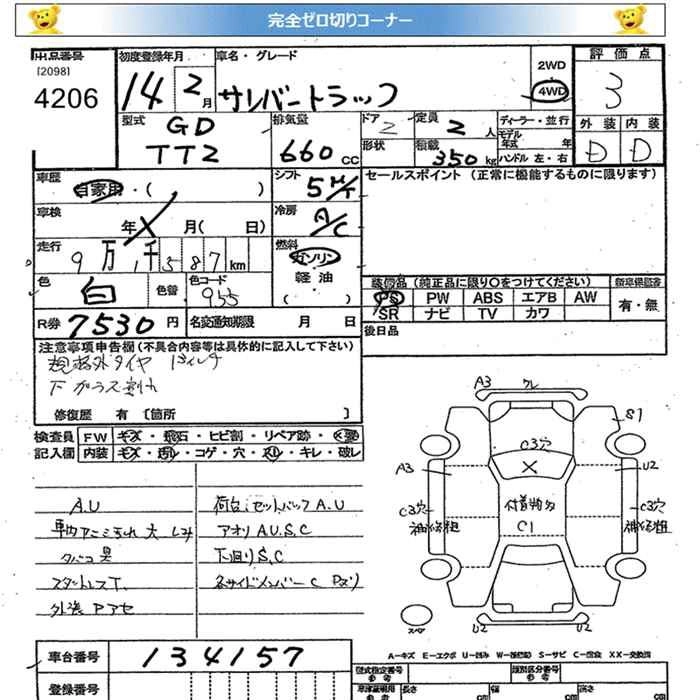 完全ゼロ切りコーナー
出品番号 初度登録年月 車名・グレード 2WD 評価点
[2098]
4206 14 2月 サンバートラック 4WD 3
型式 排気量 ドア 定員 ディーラー・並行 外装 内装
GD 2 2人 モデル年式 年
TT2 660cc 形状 積載 350kg ハンドル 左・右 D D
車歴 シフト セールスポイント (正常に機能するものに限ります)
自家用・( ) 5M/T
車検 冷房
年X月( 日) A/C
走行 燃料
9万1千587km ガソリン
色 色替 色コード 軽油 装備品(純正品に限り○をつけてください) 新車保証書
白 955 ( ) PS PW ABS エアB AW 有・無
SR ナビ TV カワ
R券 7530円 名変通知期限 月 日 後日品
注意事項申告欄(不具合内容等は具体的に記入して下さい)
規格外タイヤ 13インチ
下ガラス割れ
修復歴 有 〔箇所 〕
検査員 FW キズ・飛石・ヒビ割・リペア跡・X要
記入欄 内装 キズ・汚レ・コゲ・穴・スレ・キレ・破レ
A.U 荷台:セットバックA.U
大 シミ アオリ A.U.S.C
タバコ臭 下廻りS.C
スタッドレスT. 各サイドメンバー C
外装 アセ
A3 ワレ
S1
C3穴
A3 U2
C3穴 付着物多 C3穴
C1
スペア U2 U2
A-キズ E-エクボ U-凹み W-補修跡 S-サビ C-腐食 XX-交換済
車台番号 134157 型式指定番号 類別区分番号
登録番号 長さ 幅 高さ